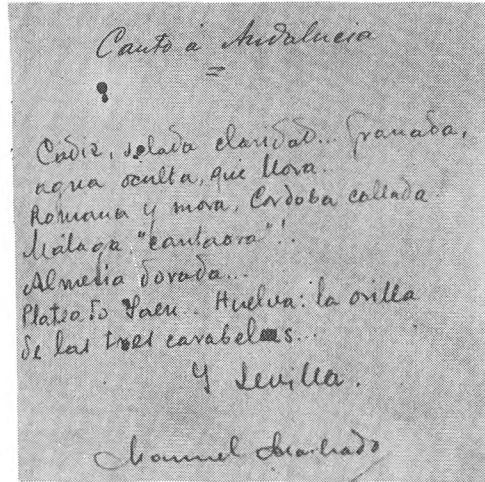 Canto á Andalucia
Cadiz, salada claridad... Granada,
agua oculta, que llora.
Romana y mora, Cordoba callada.
Málaga, "cantaora"!.
Almeria dorada...
Plateado Jaen.. Huelva: la orilla
de las tres carabelas...
Y Sevilla.
Manuel Machado